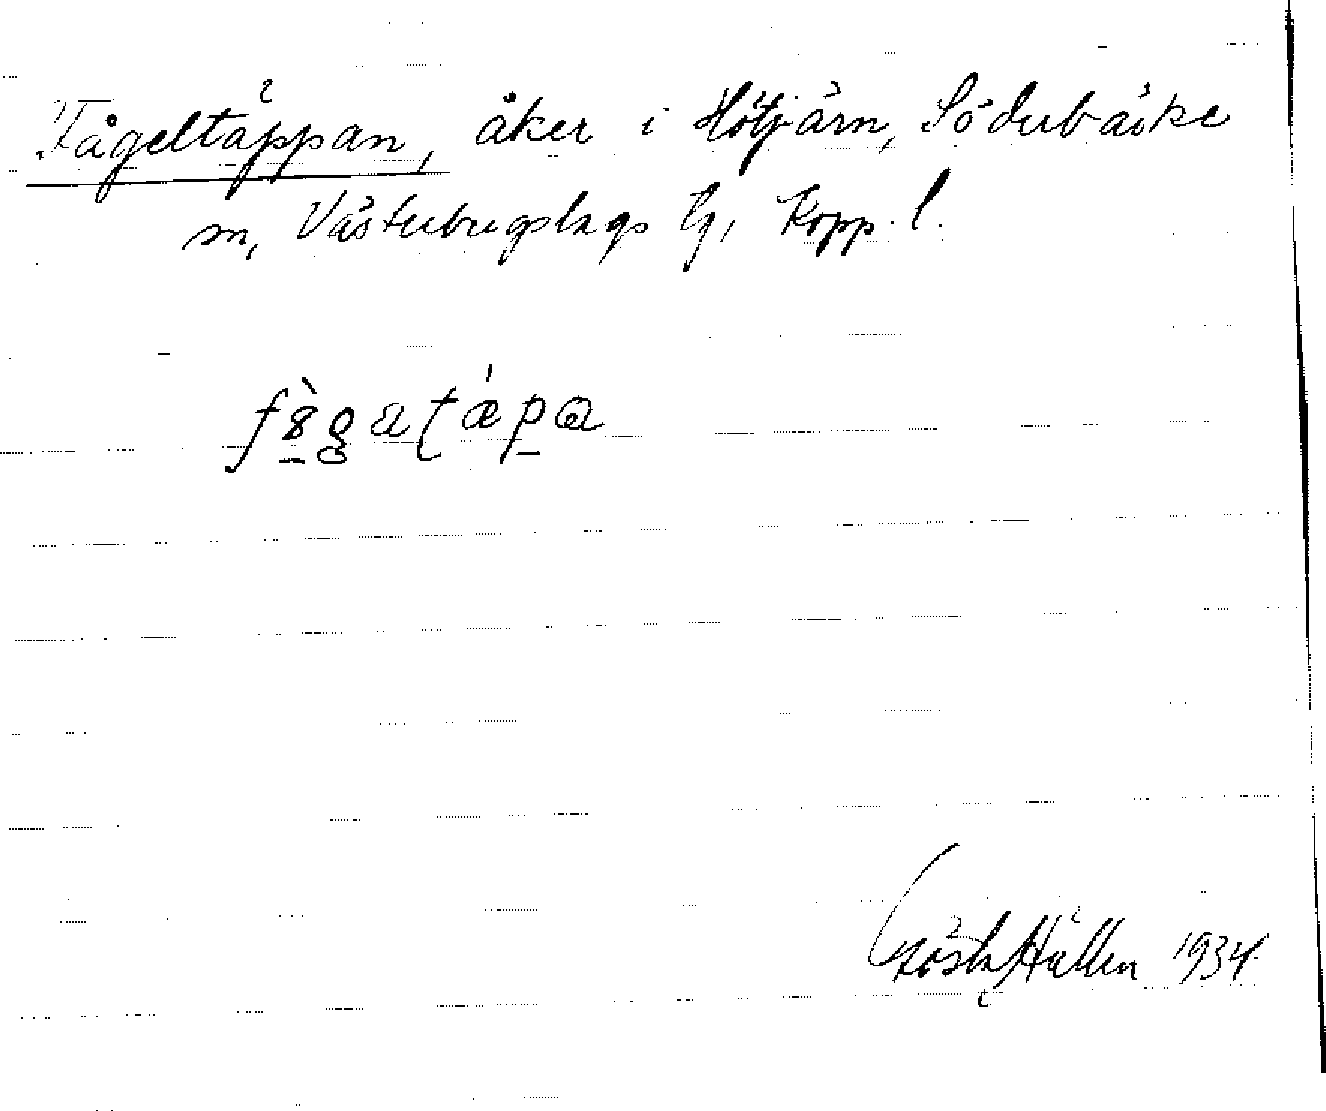 Fågeltäppan, åker i Hötjärn, Söderbärke
sn, Västerbergslags tg, Kopp. l.
Gösta Hallén 1934.